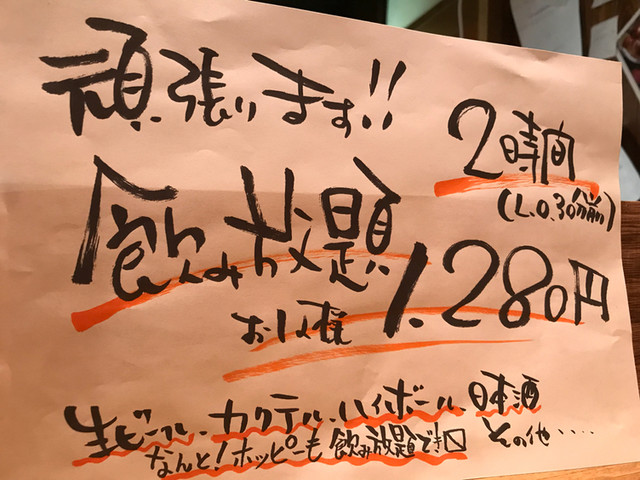 頑張ります!!
2時間
(L.O.30分前)
飲み放題
お1人様 1.280円
生ビール、カクテル、ハイボール、日本酒
なんと!ホッピーも飲み放題でき〼 その他・・・・